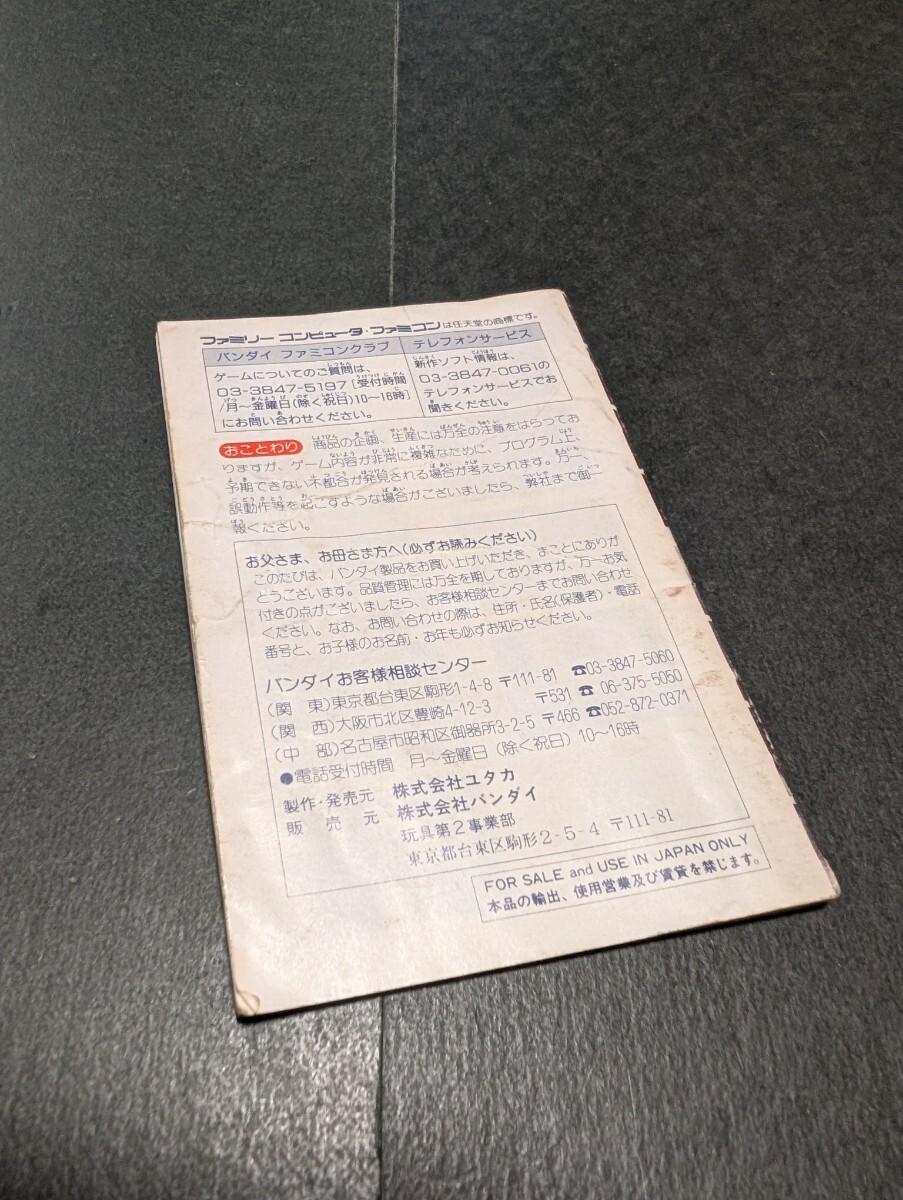 ファミリー コンピュータ・ファミコンは任天堂の商標です。
バンダイ ファミコンクラブ
ゲームについてのご質問は、
03-3847-5197 [受付時間
/月〜金曜日(除く祝日)10〜16時]
にお問い合わせください。
テレフォンサービス
新作ソフト情報は、
03-3847-0061の
テレフォンサービスでお
聞きください。
おことわり 商品の企画、生産には万全の注意をはらってお
りますが、ゲーム内容が非常に複雑なために、プログラム上、
予期できない不都合が発見される場合が考えられます。万一、
誤動作等を起こすような場合がございましたら、弊社まで御一
報ください。
お父さま、お母さま方へ(必ずお読みください)
このたびは、バンダイ製品をお買い上げいただき、まことにありが
とうございます。品質管理には万全を期しておりますが、万一お気
付きの点がございましたら、お客様相談センターまでお問い合わせ
ください。なお、お問い合わせの際は、住所・氏名(保護者)・電話
番号と、お子様のお名前・お年も必ずお知らせください。
バンダイお客様相談センター
(関 東)東京都台東区駒形1-4-8 〒111-81 ☎03-3847-5060
(関 西)大阪市北区豊崎4-12-3 〒531 ☎ 06-375-5050
(中 部)名古屋市昭和区御器所3-2-5 〒466 ☎052-872-0371
●電話受付時間 月〜金曜日(除く祝日)10〜16時
製作・発売元 株式会社ユタカ
販売元 株式会社バンダイ
玩具第2事業部
東京都台東区駒形2-5-4 〒111-81
FOR SALE and USE IN JAPAN ONLY
本品の輸出、使用営業及び賃貸を禁じます。